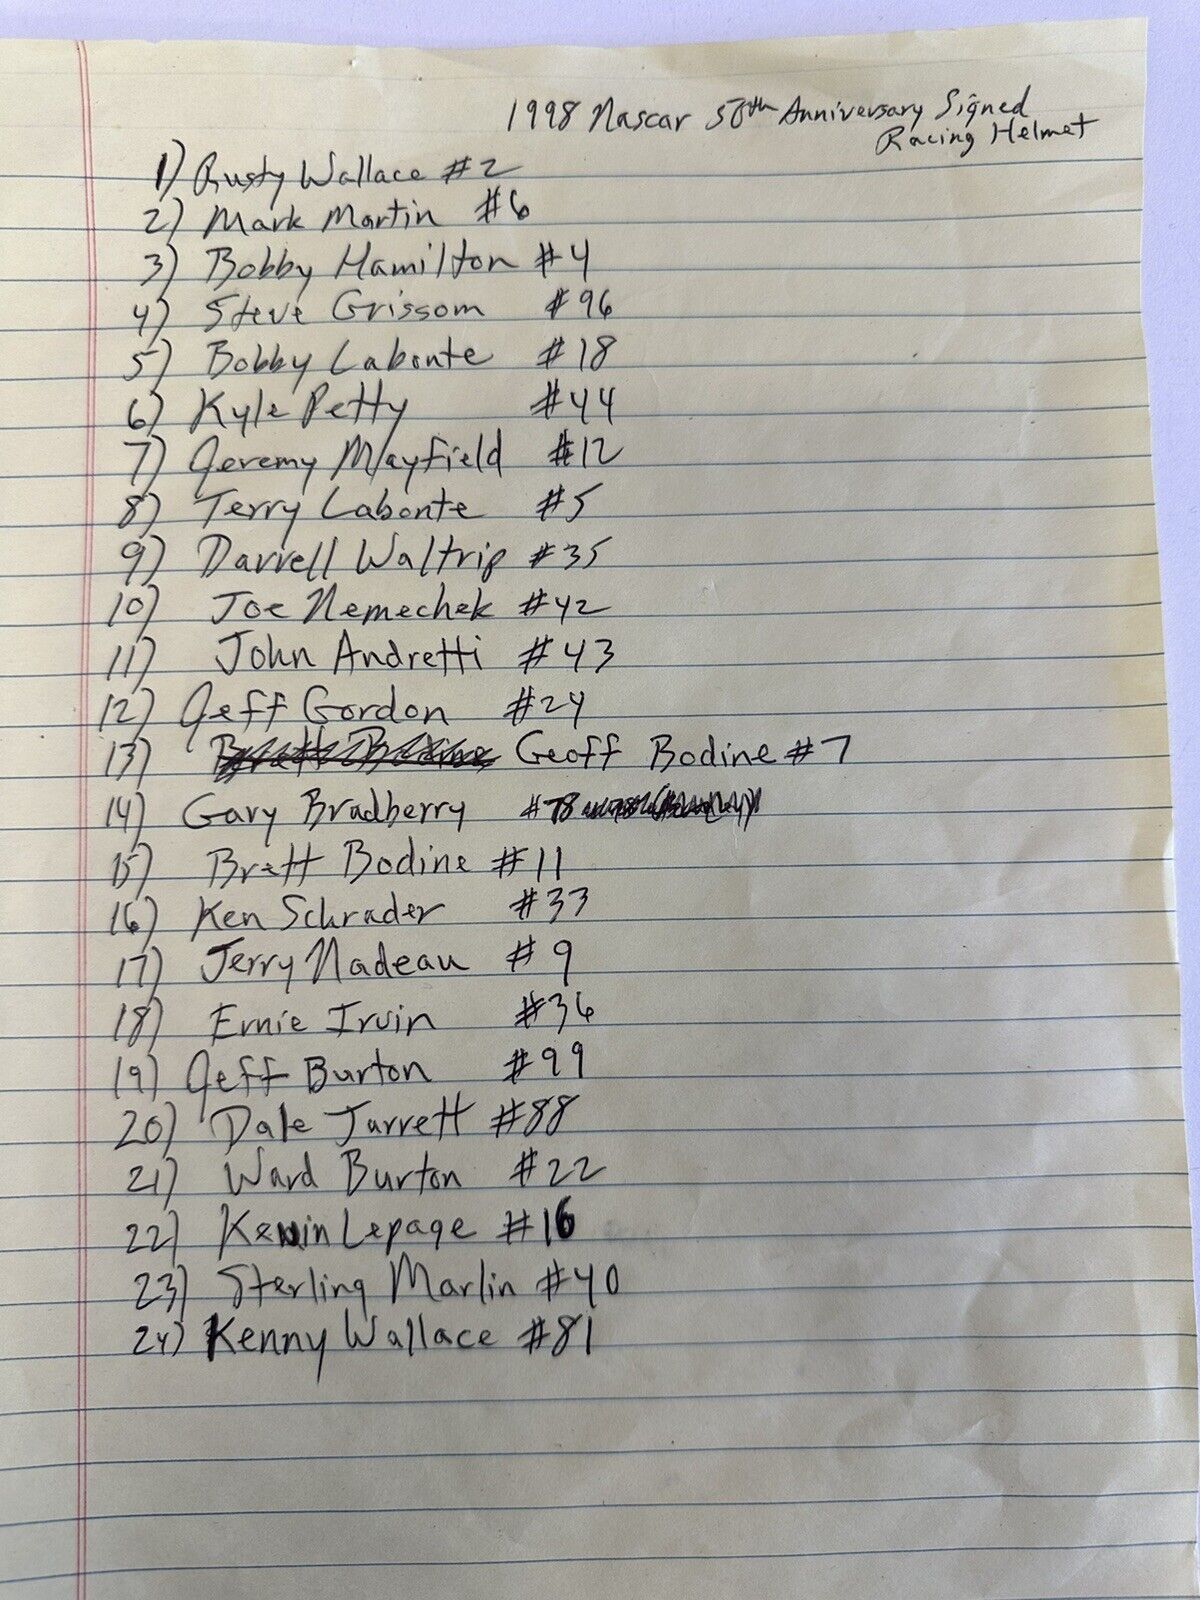 1998 Nascar 50th Anniversary Signed
Racing Helmet
1) Rusty Wallace #2
2) Mark Martin #6
3) Bobby Hamilton #4
4) Steve Grissom #96
5) Bobby Labonte #18
6) Kyle Petty #44
7) Jeremy Mayfield #12
8) Terry Labonte #5
9) Darrell Waltrip #35
10) Joe Nemechek #42
11) John Andretti #43
12) Jeff Gordon #24
13) Geoff Bodine #7
14) Gary Bradberry #78
15) Brett Bodine #11
16) Ken Schrader #33
17) Jerry Nadeau #9
18) Ernie Irvin #36
19) Jeff Burton #99
20) Dale Jarrett #88
21) Ward Burton #22
22) Kevin Lepage #16
23) Sterling Marlin #40
24) Kenny Wallace #81